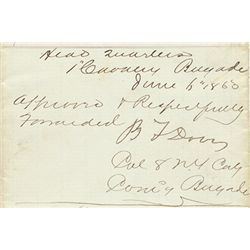 Head Quarters
1st Cavalry Brigade
June 6th 1863
Approved & Respectfully
Forwarded
B F Davis
Col 8 N Y Cav
Comdg Brigade